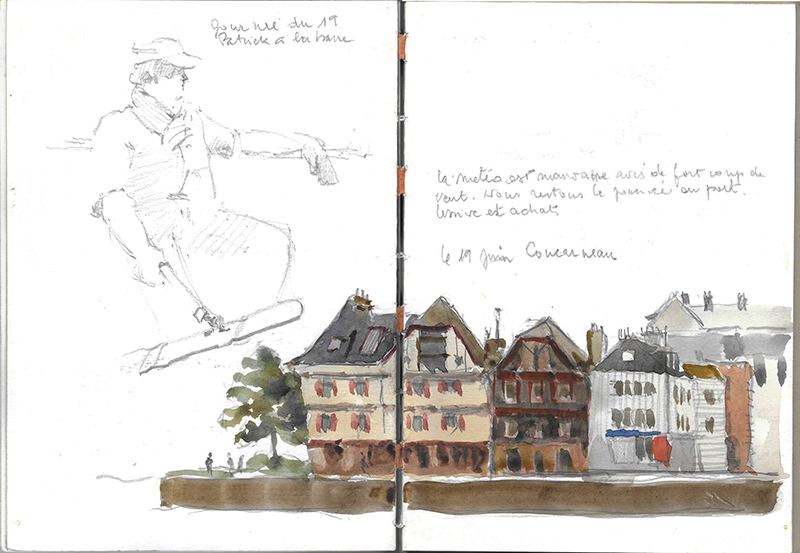 Journée du 19
Patrick à la barre
la météo est mauvaise avis de fort coup de
vent. Nous restons la journée au port.
lessive et achats
le 19 juin Concarneau